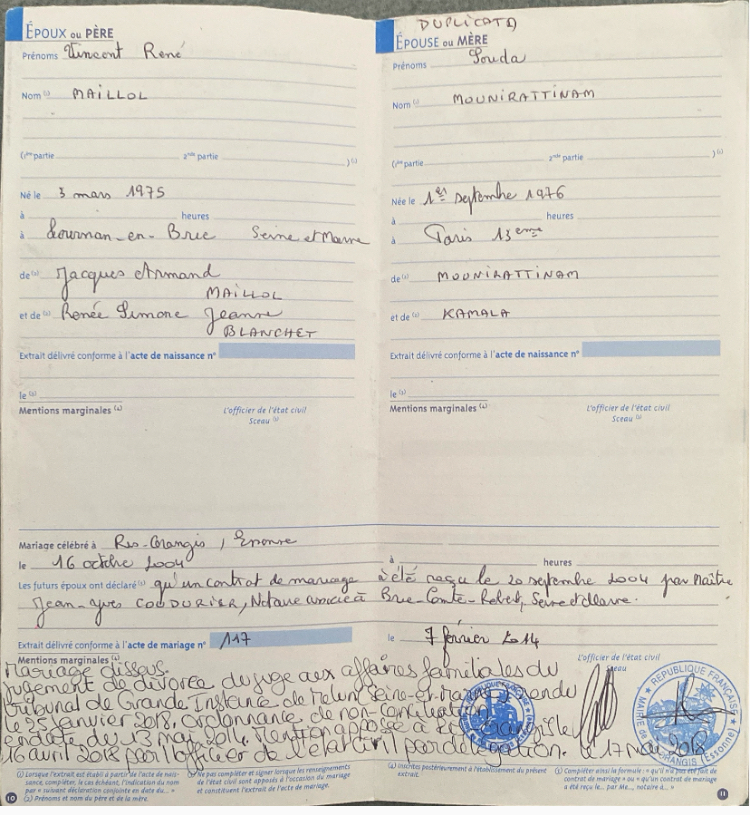 ÉPOUX OU PÈRE
Prénoms Vincent René
Nom (1) MAILLOL
(1ère partie 2nde partie ) (1)
Né le 3 mars 1975
à heures
à Tournan-en-Brie Seine et Marne
de (2) Jacques Armand
MAILLOL
et de (2) Renée Simone Jeanne
BLANCHET
Extrait délivré conforme à l'acte de naissance n°
le (3)
Mentions marginales (4)
L'officier de l'état civil
Sceau (3)
DUPLICATA
ÉPOUSE OU MÈRE
Prénoms
Nom (1) MOUNIRATTINAM
(1ère partie 2nde partie ) (1)
Née le 1er septembre 1976
à heures
à Paris 13eme
de (2) MOUNIRATTINAM
et de (2) KAMALA
Extrait délivré conforme à l'acte de naissance n°
le (3)
Mentions marginales (4)
L'officier de l'état civil
Sceau (3)
Mariage célébré à Ris-Orangis, Essonne
le 16 octobre 2004 à heures
Les futurs époux ont déclaré (5) qu'un contrat de mariage a été reçu le 20 septembre 2004 par Maître
Jean-Yves COUDURIER, Notaire associé à Brie-Comte-Robert, Seine et Marne.
Extrait délivré conforme à l'acte de mariage n° 117 le 7 février 2014
Mentions marginales (4)
L'officier de l'état civil
Sceau
Mariage dissous.
jugement de divorce du juge aux affaires familiales du
tribunal de Grande Instance de Melun Seine-et-Marne rendu
le 25 janvier 2018. Ordonnance de non-conciliation
en date du 13 mai 2014. Mention apposée à Ris-Orangis le
16 avril 2018 par l'officier de l'état civil par délégation. Le 17 mai 2018
RÉPUBLIQUE FRANÇAISE
MAIRIE DE RIS-ORANGIS (Essonne)
(1) Lorsque l'extrait est établi à partir de l'acte de nais-
sance, compléter, le cas échéant, l'indication du nom
par « suivant déclaration conjointe en date du... »
(2) Prénoms et nom du père et de la mère.
(3) Ne pas compléter et signer lorsque les renseignements
de l'état civil sont apposés à l'occasion du mariage
et constituent l'extrait de l'acte de mariage.
(4) Inscrites postérieurement à l'établissement du présent
extrait.
(5) Compléter ainsi la formule : « qu'il n'a pas été fait de
contrat de mariage » ou « qu'un contrat de mariage
a été reçu le... par Me..., notaire à... »
10
11